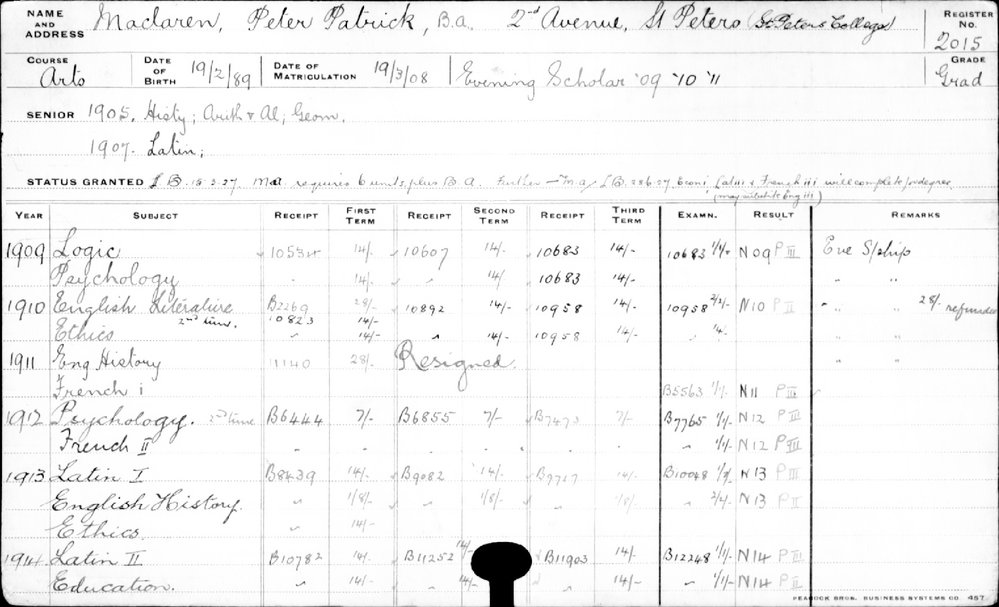 NAME AND ADDRESS Maclaren, Peter Patrick, B.a. 2nd Avenue, St Peters (St Peters College) REGISTER No. 2015
COURSE Arts DATE OF BIRTH 19/2/89 DATE OF MATRICULATION 19/3/08 Evening Scholar '09 '10 '11 GRADE Grad
SENIOR 1905. Histy; Arith & Al; Geom.
1907. Latin;
STATUS GRANTED requires 6 units plus B A. Further Latin & French iii will complete
(may substitute Eng iii)
YEAR SUBJECT RECEIPT FIRST TERM RECEIPT SECOND TERM RECEIPT THIRD TERM EXAMN. RESULT REMARKS
1909 Logic 14/- 10607 14/- 10683 14/- 10683 1/1/- N 09 P III Eve S/ship
Psychology " 14/- " 14/- 10683 14/- " "
1910 English Literature B2269 28/- 10892 14/- 10958 14/- 10958 2/2/- N10 P II " " 28/- refunded
2nd time. 10823 14/-
Ethics " 14/- " 14/- 10958 14/- " " "
1911 Eng History 11140 28/- Resigned. " "
French i B5563 1/1/- N11 P III
1912 Psychology. 2nd time B6444 7/- B6855 7/- B7473 7/- B7765 1/1/- N12 P III
French II " 1/1/- N12 P III
1913 Latin I B8439 14/- B9082 14/- B9717 14/- B10048 1/1/- N13 P III
English History. " 1/8/- " 1/8/- 1/8/- " 2/2/- N13 P II
Ethics. " 14/-
1914 Latin II B10782 14/- B11252 14/- B11903 14/- B12248 1/1/- N14 P III
Education. " 14/- " 14/- 14/- " 1/1/- N14 P II
PEACOCK BROS. BUSINESS SYSTEMS CO. 457